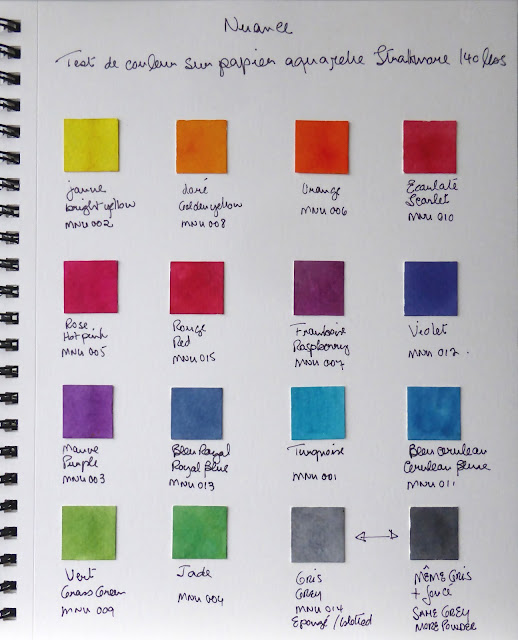 Nuance
Test de couleur sur papier aquarelle Strathmore 140 lbs
jaune
bright yellow
MNU 002
doré
Golden yellow
MNU 008
Orange
MNU 006
Ecarlate
Scarlet
MNU 010
Rose
Hot pink
MNU 005
Rouge
Red
MNU 015
Framboise
Raspberry
MNU 007
Violet
MNU 012.
Mauve
Purple
MNU 003
Bleu Royal
Royal Blue
MNU 013
Turquoise
MNU 001
Bleu Ceruleen
Cerulean Blue
MNU 011
Vert
Grass Green
MNU 009
Jade
MNU 004
GRIS
GREY
MNU 014
Epongé / blotted
MÊME GRIS
+ foncé
SAME GREY
MORE POWDER